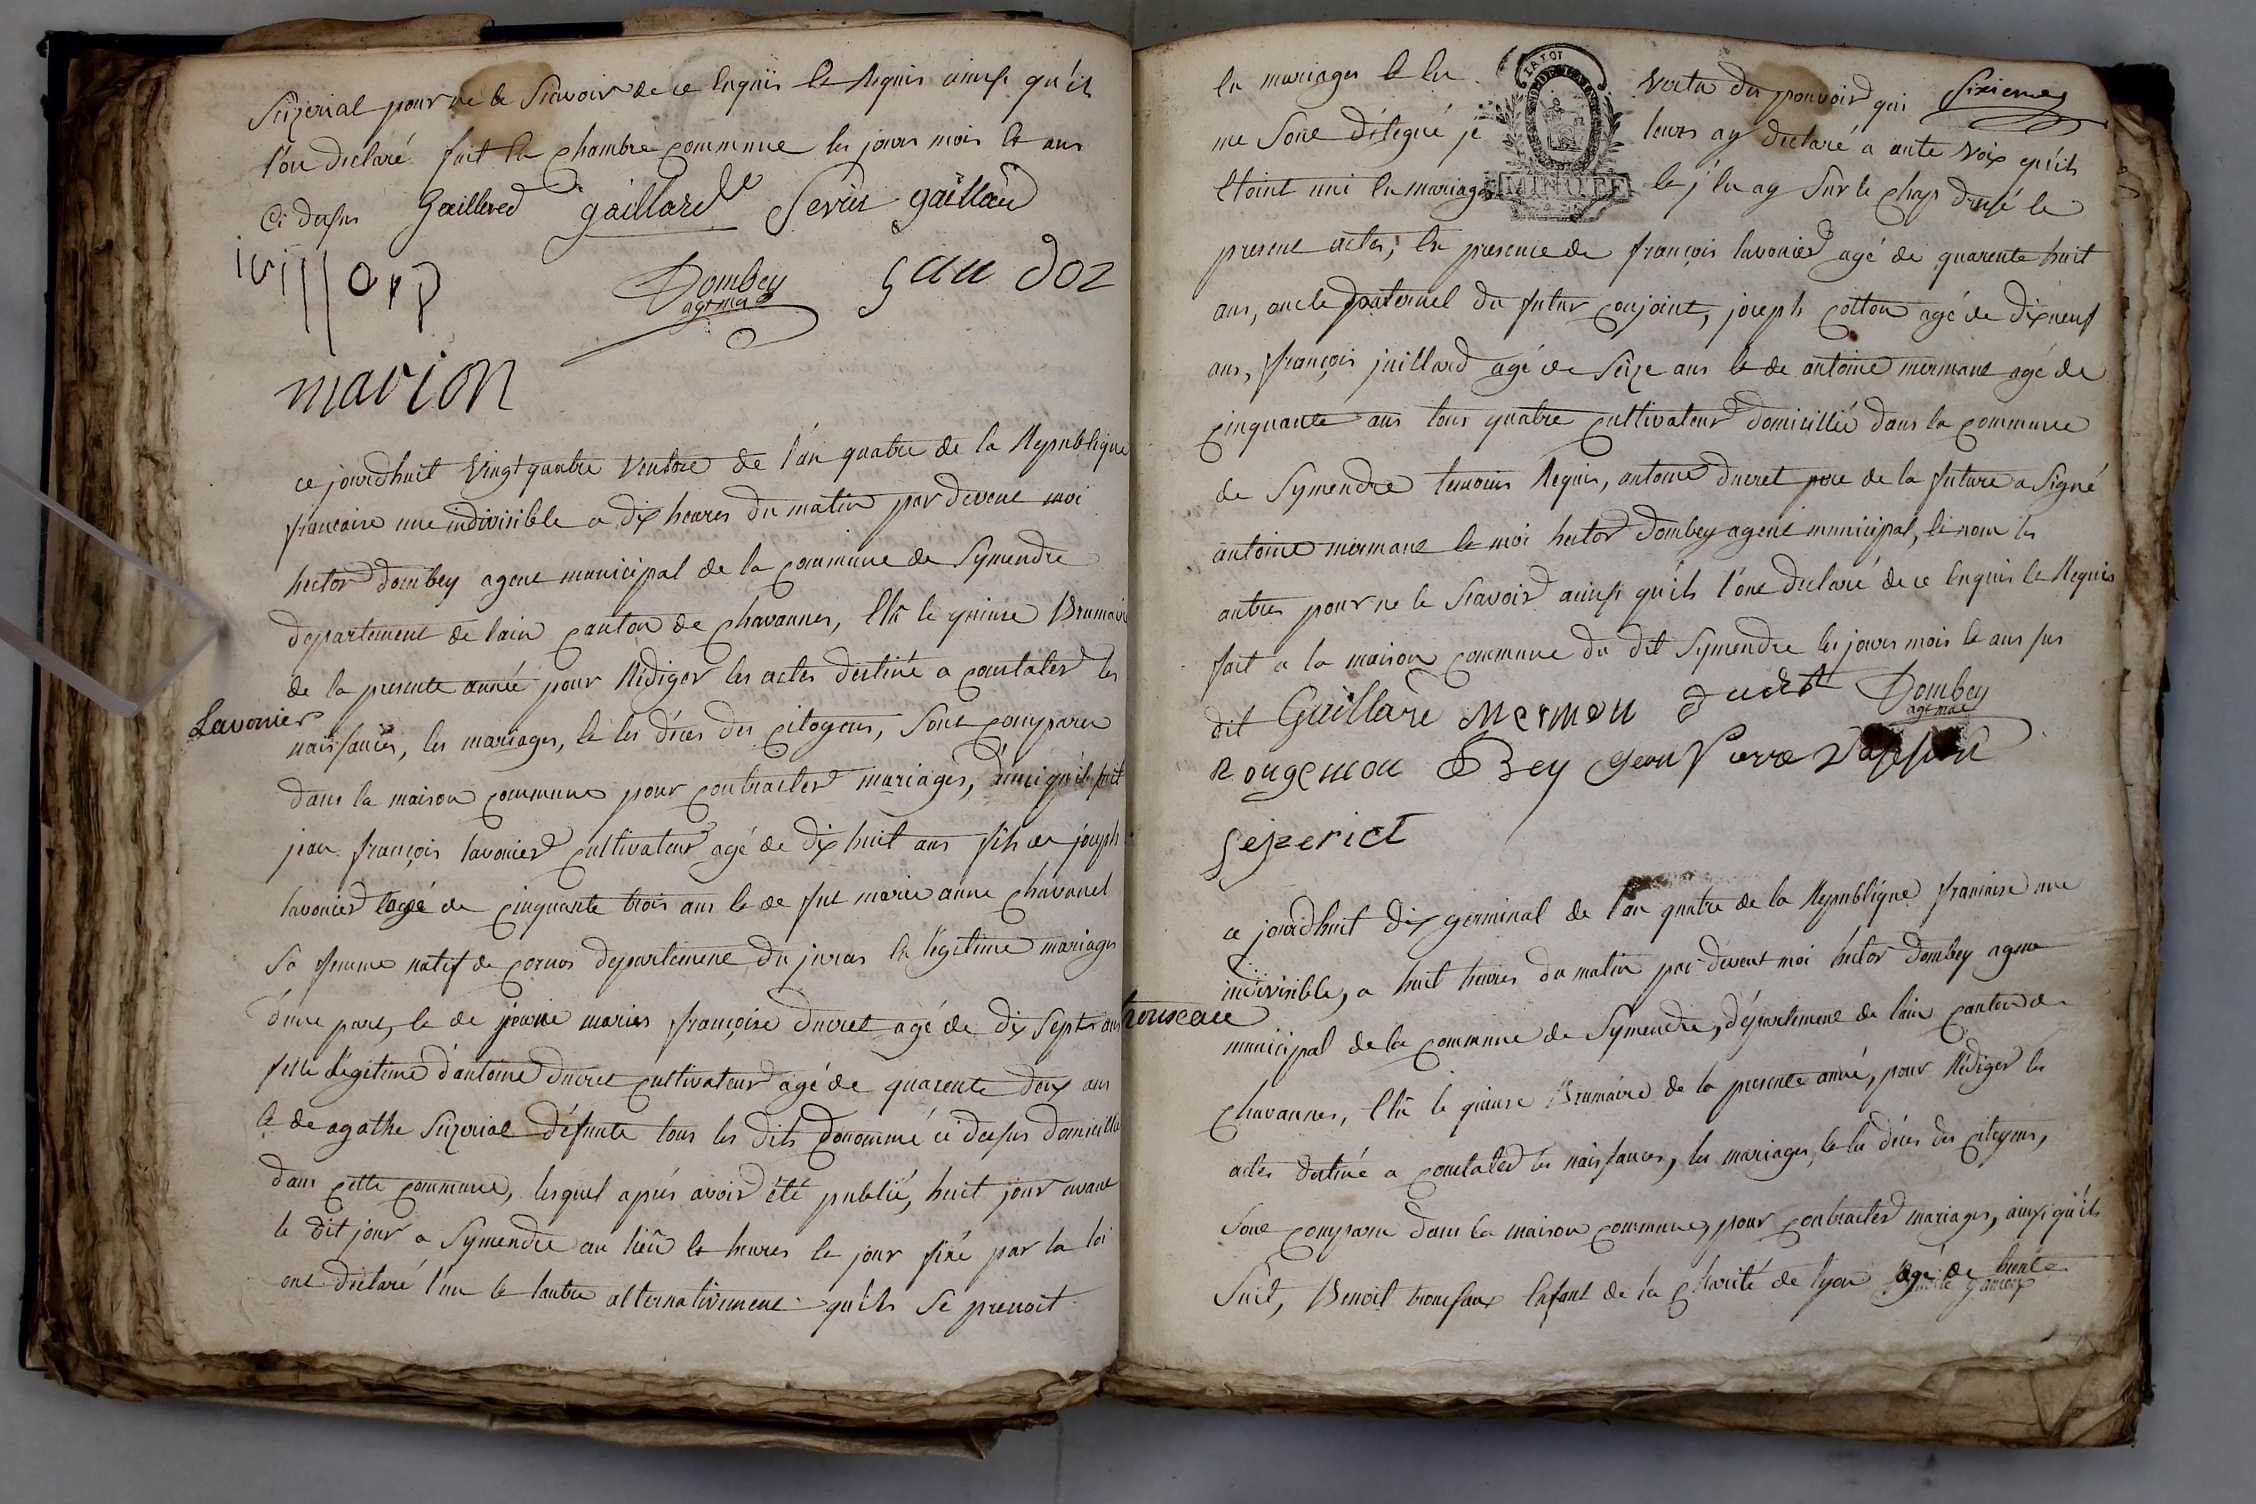 Suizerial pour ne le Scavoir de ce Enquis et Requis ainsi qu'ils
l'on declaré fait En chambre commune les jours mois et ans
Ci dessus Gaillard gaillard Gaillard
Dombey
agt mal
marion
ce jourdhuit Vingt quatre Ventose de l'an quatre de la Republique
francaise une indivisible a dix heures du matin par devent moi
hector Dombey agent municipal de la commune de Symendre
departement de lain canton de Chavannes, Elû le quinse Brumaire
de la presente année pour Rediger les actes destiné a constater les
Lavonier
naissances, les mariages, et les déces des citoyens, sont comparu
dans la maison commune pour contracter mariages, ainsi qu'ils suit
jean françois lavonier cultivateur agé de dix huit ans fils de joseph
lavonier agé de cinquante trois ans et de fut marie anne Chavanel
sa femme natif de cornos departement du juras En legitime mariages
d'une part, et de maries françoise ducret agé de dix sept ans
fille legitime d'antoine ducret cultivateur agé de quarente deux ans
et de agathe Suizerial défunte tous les dits denommé ci dessus domicillié
dans cette commune, lesquel apres avoir été publié, huit jour avant
le dit jour a Symendre au lieu et heures et jour fixé par la loi
ont declaré l'un et lautre alternativement qu'ils se prenoit
En mariages et En Vertu du pouvoir qui Sixieme
me sont délegué je leurs ay declaré a aute voix qu'ils
Etoint uni En mariages et j'En ay sur le champ dressé le
present actes, En presence de françois lavonier agé de quarente huit
ans, oncle paternel du futur conjoint, joseph cotton agé de dixneuf
ans, françois juillard agé de Seize ans et de antoine mermant agé de
cinquante ans tous quatre cultivateur domicillié dans la commune
de Symendre temoins Requis, antoine ducret pere de la future a signé
antoine mermant et moi hector Dombey agent municipal, et non les
autres pour ne le Scavoir ainsi qu'ils l'ont declaré de ce Enquis et Requis
fait a la maison commune du dit Symendre les jours mois et ans sus
dit Gaillard Mermon Dombey
agt mal
Rongemon Rey Jean Pierre
Sejzeriat
ce jourdhuit dix germinal de l'an quatre de la Republique francaise une
indivisible, a huit heures du matin par devent moi hector Dombey agent
trouseau
municipal de la commune de Symendre, département de lain canton de
Chavannes, Elû le quinse Brumaire de la presente anné, pour Rédiger les
actes destiné a constater les naissances, les mariages, et les déces des citoyens,
sont comparu dans la maison commune, pour contracter mariages, ainsi qu'ils
suit, Benoit trousseaux Enfant de la Charité de lyon agé de trente